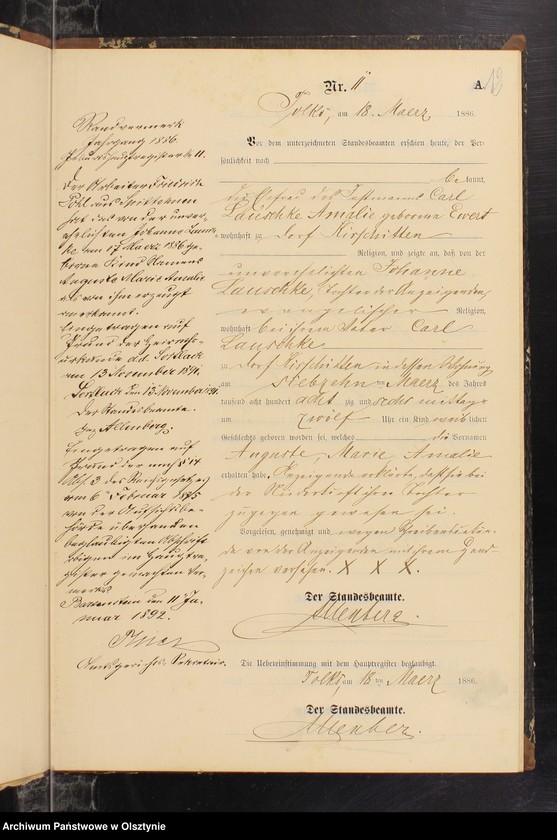 Nr. 11
A. 12
Tolks, am 18. Maerz 1886.
Vor dem unterzeichneten Standesbeamten erschien heute, der Per-
sönlichkeit nach
be kannt,
die Ehefrau des Instmanns Carl
Lauschke Amalie geborene Ewert
wohnhaft zu Dorf Kirschitten
Religion, und zeigte an, daß von der
unverehelichten Johanne
Lauschke, Tochter der Anzeigenden,
evangelischer Religion,
wohnhaft bei ihrem Vater Carl
Lauschke
zu Dorf Kirschitten in dessen Wohnung
am siebzehn ten Maerz des Jahres
tausend acht hundert acht zig und sechs Mittags
um zwölf Uhr ein Kind weib lichen
Geschlechts geboren worden sei, welches die Vornamen
Auguste, Marie Amalie
erhalten habe. Anzeigende erklärte, daß sie bei
der Niederkunft ihrer Tochter
zugegen gewesen sei.
Vorgelesen, genehmigt und wegen Schreibensunkun-
de von der Anzeigenden mit ihrem Hand-
zeichen versehen. X X X.
Der Standesbeamte.
Altenberg.
Die Uebereinstimmung mit dem Hauptregister beglaubigt.
Tolks, am 18 ten Maerz 1886.
Der Standesbeamte.
Altenberg.
Randvermerk
Jahrgang 1886.
Geburtsregister № 11.
Der Arbeiter Friedrich
Pohl aus
hat das von der unver-
ehelichten Johanne Lausch-
ke am 17 Maerz 1886 ge-
borene Kind Namens
Auguste Marie Amalie
als von ihm erzeugt
anerkannt.
Eingetragen auf
Grund der Heiraths-
urkunde d.d.
am 13 November 1891.
den 13 November 1891.
Der Standesbeamte.
gez Altenberg.
Eingetragen auf
Grund der nach § 14
Abs. 2 des Reichsgesetzes
vom 6 Februar 1875
von der Aufsichtsbe-
hörde übersandten
beglaubigten Abschrift
des im Hauptre-
gister gemachten Ver-
merks
Bartenstein den 11 Ja-
nuar 1892.
Amtsgerichts Sekretair.
Archiwum Państwowe w Olsztynie